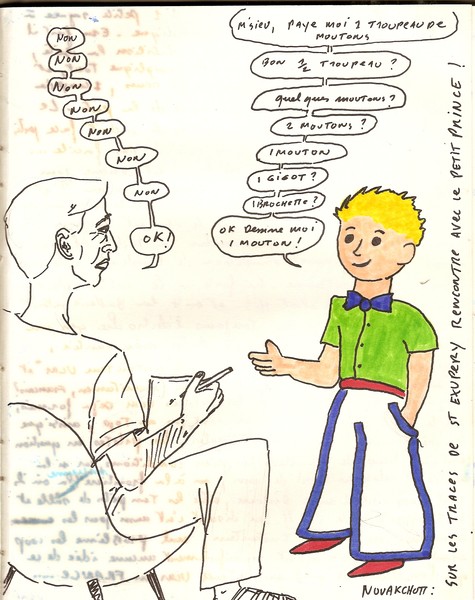 M'SIEU, PAYE MOI 1 TROUPEAU DE
MOUTONS
BON 1/2 TROUPEAU ?
quelques moutons ?
2 MOUTONS ?
1 MOUTON
1 GIGOT ?
1 BROCHETTE ?
OK Dessine moi
1 MOUTON !
NON
NON
NON
NON
NON
NON
NON
OK !
SUR LES TRACES DE ST EXUPERY RENCONTRE AVEC LE PETIT PRINCE !
NOUAKCHOTT :